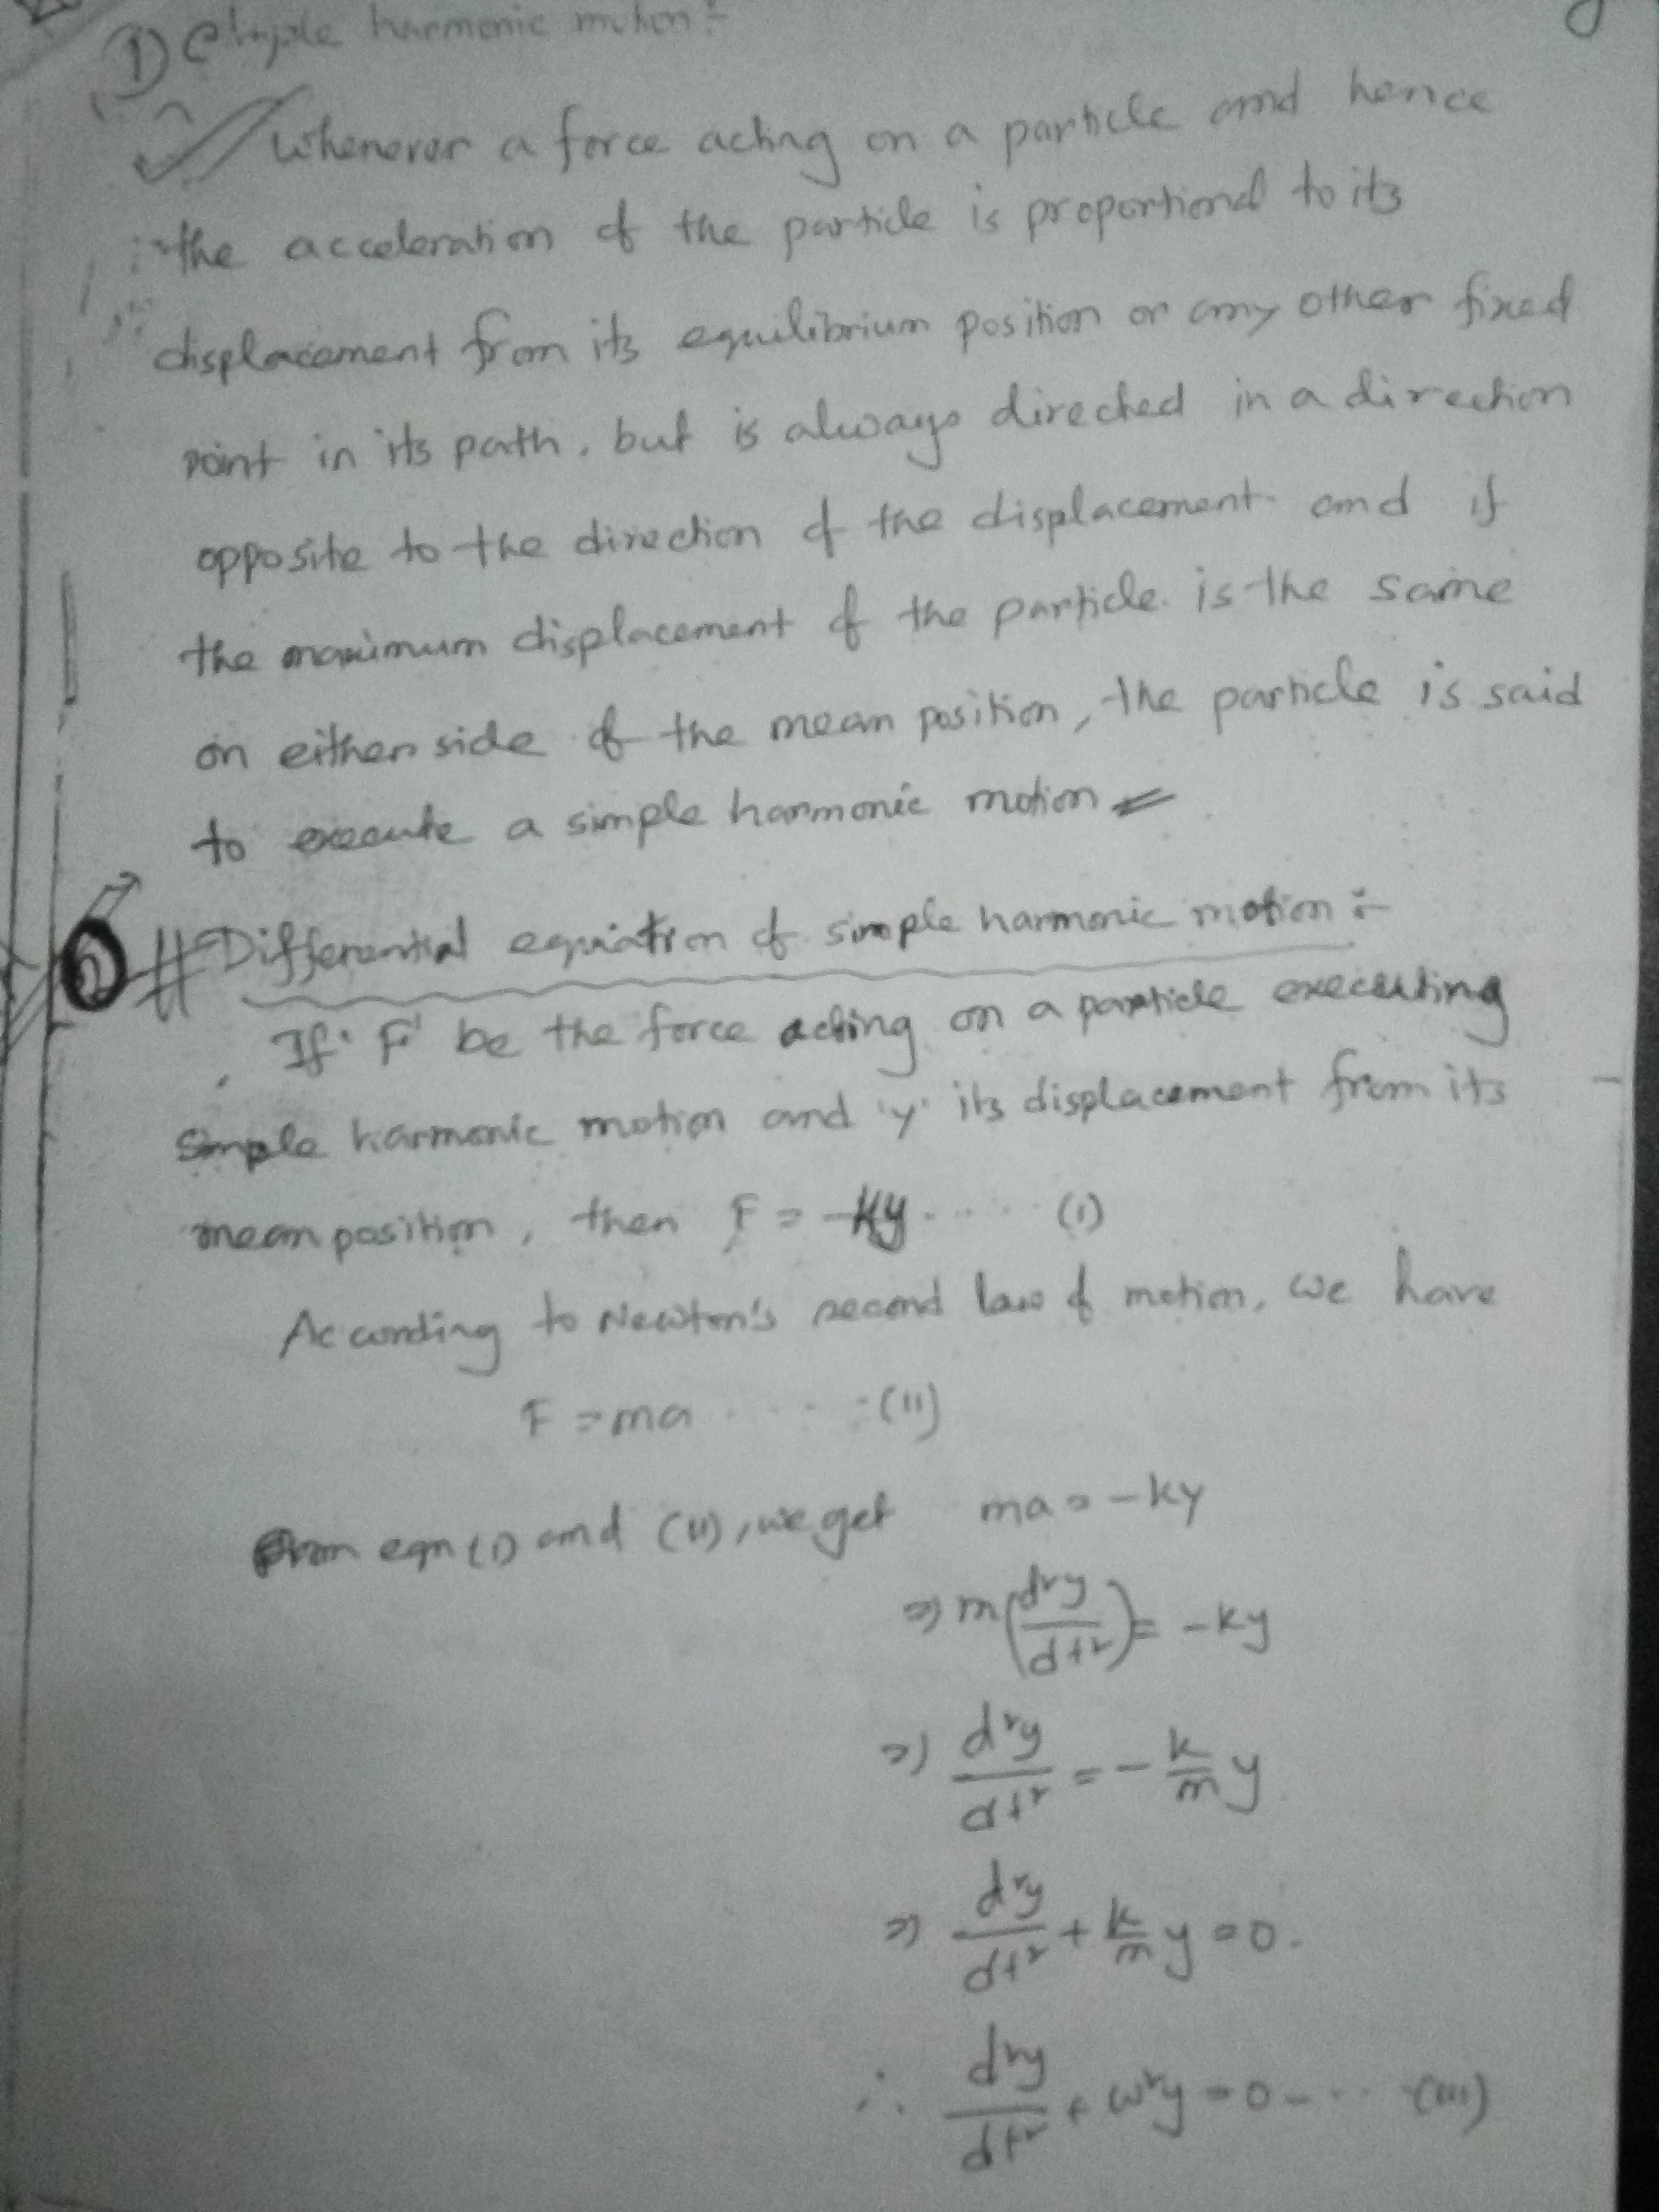 ① Simple harmonic motion :-
Whenever a force acting on a particle and hence
the acceleration of the particle is proportional to its
displacement from its equilibrium position or any other fixed
point in its path, but is always directed in a direction
opposite to the direction of the displacement and if
the maximum displacement of the particle is the same
on either side of the mean position, the particle is said
to execute a simple harmonic motion
② # Differential equation of simple harmonic motion :-
If 'F' be the force acting on a particle executing
Simple harmonic motion and 'y' its displacement from its
mean position, then F = -ky ..... (i)
According to Newton's second law of motion, we have
F = ma ..... (ii)
From eqn (i) and (ii), we get ma = -ky
⇒ m(d²y/dt²) = -ky
⇒ d²y/dt² = - k/m y
⇒ d²y/dt² + k/m y = 0.
∴ d²y/dt² + ω²y = 0 - ... (iii)